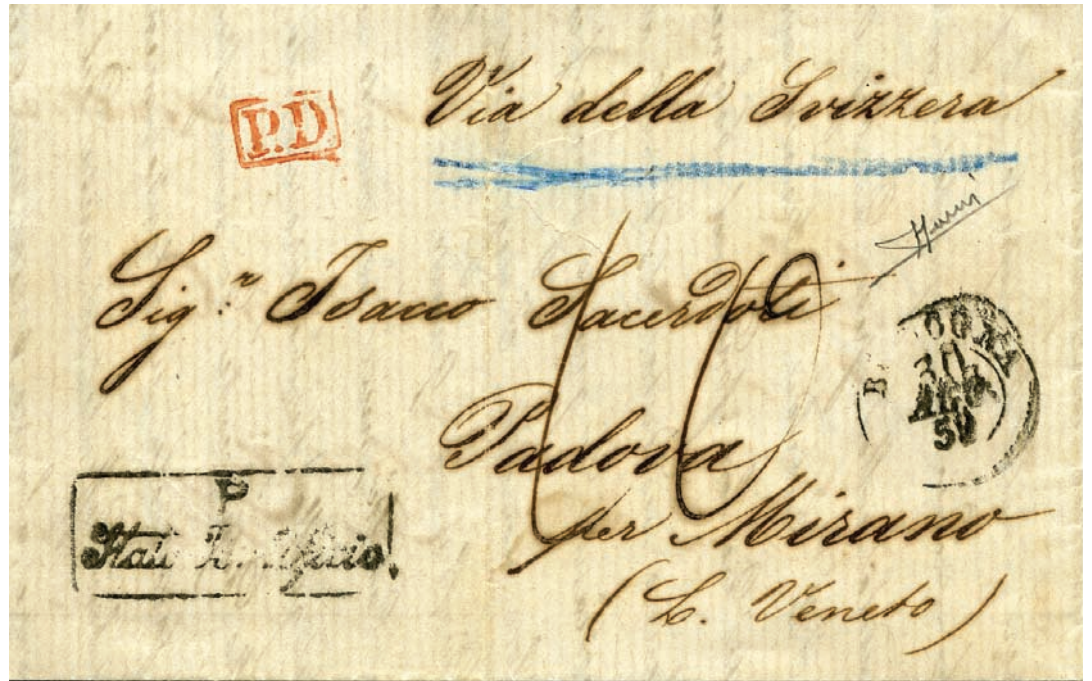 Via della Svizzera
P.D
Sig.r Isacco Sacerdoti
BOLOGNA
30
AGO
59
Padova
per Mirano
(L. Veneto)
P
Stato Pontificio